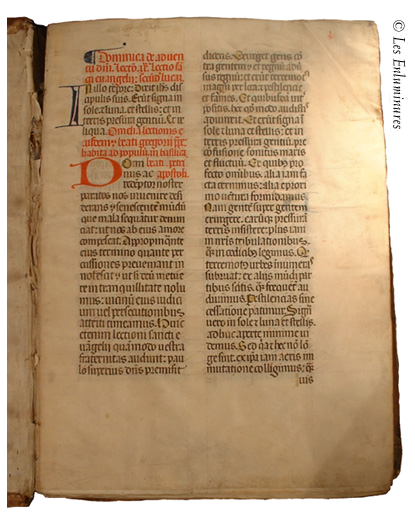 Dominica de adven
tu dñi. lectio sc̃i
euangelij. secud̃ lucā.
In illo tempore: Dixit ihs di
scipulis suis. Erūt signa in
sole ⁊ luna. et stellis: et in
terris pressura gentiū. Et re
liqua. Omelia lectionis e
iusdem. beati gregorij pp̃e
habita ad populū in basilica
Domi beati petri
nus ac apostoli.
redēptor noster
paratos nos inuenire desi
derans
que mala sequātur denun
ciat: ut nos ab eius amore
compescat. Appropinq̃nte
eius termino quante per
cussiones preueniant in
notescit: ut si deū metue
re in tranquillitate nolu
mus: uicinū eius iudici
um uel percussionibus
attriti timeamus. Huic
etenim lectioni sancti e
uāgelij quā modo uestra
fraternitas audiuit: pau
lo superius dñs premisit
dicens. Exurget gens cō
tra gentem: et regnū aduer
sus regnū: et erūt terremot
magni per loca: pestilencie
et fames. Et quibusdā int
positis: hec q̃ modo audistis
adiunxit. Et erūt signa ī
sole ⁊ luna ⁊ stellis: et in
terris pressura gentiū: pre
cōfusione sonitus maris
et fluctuū. Ex quib; pro
fecto omnibus. alia iam fa
cta cernimus: alia e primo
uentura formidamus.
Nam gentē super gentem
exurgere. earūq; pressurā
terris insistere: plus iam
in nr̃is tribulationibus
q̃ in codicib; legimus. Q̃
terremot urbes īnumeras
subruat: ex alijs mūdi par
tibus scitis. q̃ frequēt̃ au
diuimus. Pestilencias sine
cessatione patimur. Signa
uero in sole ⁊ luna et stellis.
adhuc aperte minime ui
demus. Sed q̃a ⁊ hec nō lon
ge sint. ex ipa iam aeris in
mutatione colligimus: q̃
uis
© Les Enluminures